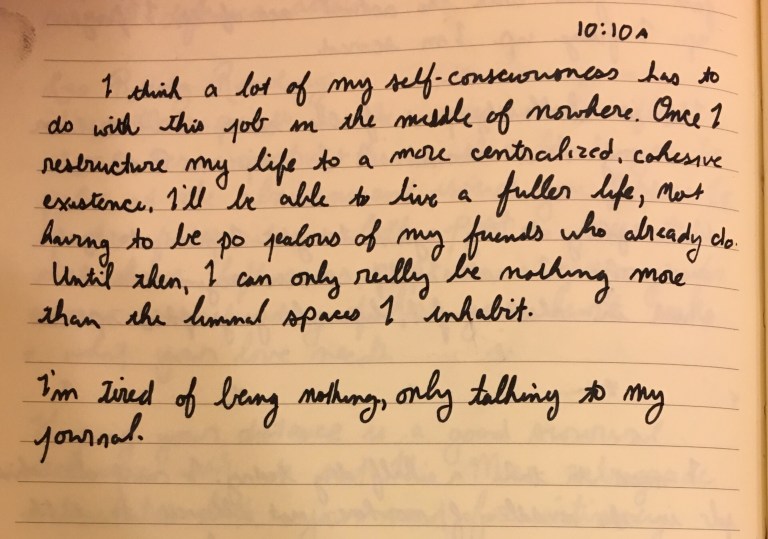 10:10A
I think a lot of my self-consciousness has to
do with this job in the middle of nowhere. Once I
restructure my life to a more centralized, cohesive
existence, I'll be able to live a fuller life, not
having to be so jealous of my friends who already do.
Until then, I can only really be nothing more
than the liminal spaces I inhabit.
I'm tired of being nothing, only talking to my
journal.